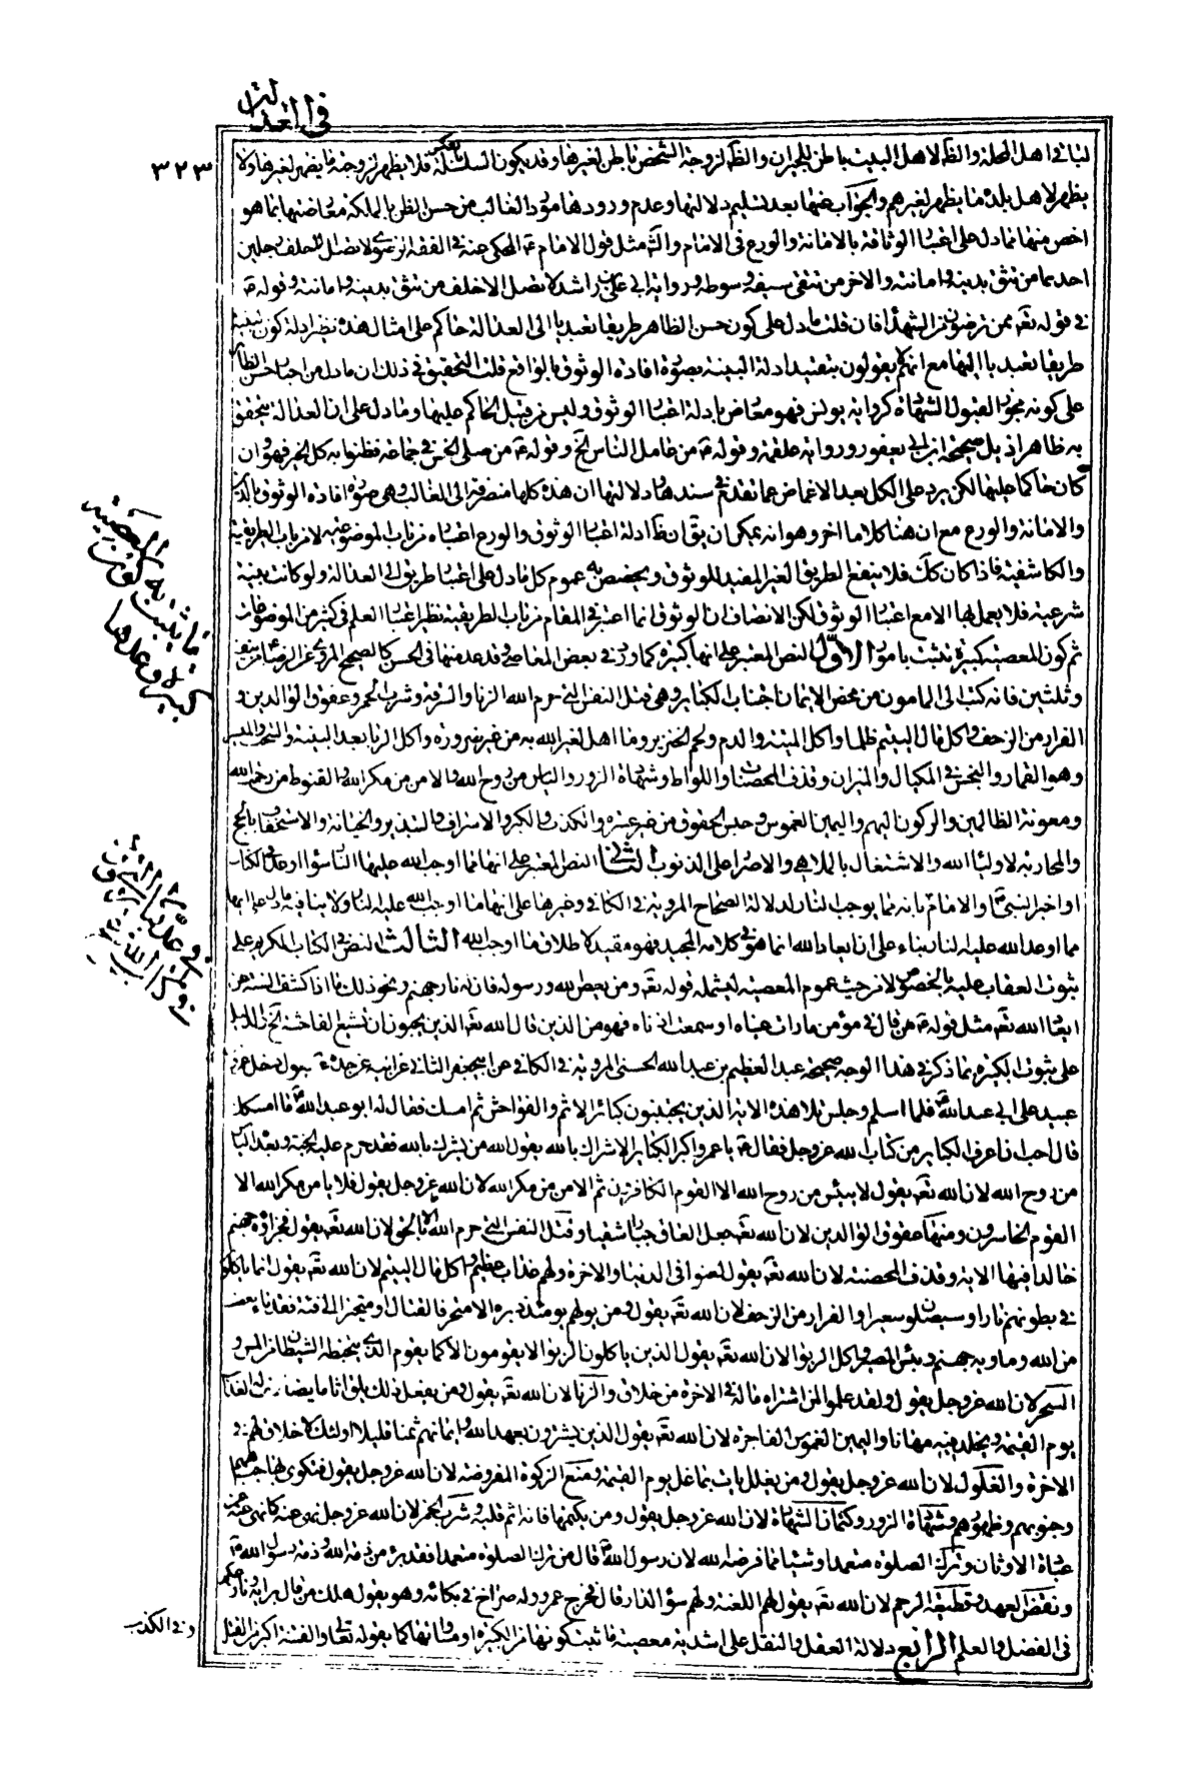 في العدالة
٣٢٣
لباقي اهل المحلة والظاهر لاهل البيت باطن للجيران والظاهر لزوجة الشخص باطن لغيرها وقد يكون السلسلة بالعكس فلا يظهر لزوجة ما يظهر لغيرها ولا
يظهر لاهل بلده ما يظهر لغيرهم والجواب عنها بعد تسليم دلالتها وعدم ورودها مورد الغالب من حسن الظن بالملكة معارضتها بما هو
اخص منها مما دل على اعتبار الوثاقة بالامانة والورع في الامام والشاهد مثل قول الامام ع المحكي عنه في الفقه الرضوي لا تصل الا خلف رجلين
احدهما من تثق بدينه وامانته والاخر من تتقي سيفه وسوطه ورواية ابي علي بن راشد لا تصل الا خلف من تثق بدينه وامانته وقوله ع
في قوله تعه ممن ترضون من الشهداء فان قلت ما دل على كون حسن الظاهر طريقا تعبديا الى العدالة حاكم على امثال هذه نظير ادلة كون البينة
طريقا تعبديا اليها مع انهم لا يقولون بتقييد ادلة البينة بصورة افادة الوثوق بالواقع قلت التحقيق في ذلك ان ما دل من اخبار حسن الظاهر
على كونه مجوزا لقبول الشهادة كرواية يونس فهو معارض بادلة اعتبار الوثوق وليس من قبيل الحاكم عليها وما دل على ان العدالة يتحقق
به ظاهرا ذيل صحيحة ابن ابي يعفور ورواية علقمة وقوله ع من عامل الناس الخ وقوله ع من صلى الخمس في جماعة فظنوا به كل الخير فهو وان
كان حاكما عليها لكن يرد على الكل بعد الاغماض عما تقدم في سندها ودلالتها ان هذه كلها منصرفة الى الغالب وهي صورة افادة الوثوق بالدين
والامانة والورع مع ان هنا كلاما اخر وهو انه يمكن ان يقال ان ظاهر ادلة اعتبار الوثوق والورع اعتباره من باب الموضوعية لا من باب الطريقية
والكاشفية فاذا كان كك فلا ينفع الطريق الغير المفيد للوثوق ويخصص به عموم كل ما دل على اعتبار طريق الى العدالة ولو كانت بينة
شرعية فلا يعمل بها الا مع اعتبار الوثوق لكن الانصاف ان الوثوق انما اعتبر في المقام من باب الطريقية نظير اعتبار العلم في كثير من الموضوعات
ثم كون المعصية كبيرة تثبت بامور الاول النص المعتبر على انها كبيرة كما ورد في بعض المعاصي وقد عد منها في الحسن كالصحيح المروي عن الرضا ع نيف
وثلثين فانه كتب الى المامون من محض الايمان اجتناب الكبائر وهي قتل النفس التي حرم الله والزنا والسرقة وشرب الخمر وعقوق الوالدين و
الفرار من الزحف واكل مال اليتيم ظلما واكل الميتة والدم ولحم الخنزير وما اهل لغير الله به من غير ضرورة واكل الربا بعد البينة والسحت والميسر
وهو القمار والبخس في المكيال والميزان وقذف المحصنات واللواط وشهادة الزور والياس من روح الله والامن من مكر الله والقنوط من رحمة الله
ومعونة الظالمين والركون اليهم واليمين الغموس وحبس الحقوق من غير عسر والكذب والكبر والاسراف والتبذير والخيانة والاستخفاف بالحج
والمحاربة لاولياء الله والاشتغال بالملاهي والاصرار على الذنوب الثاني النص المعتبر على انها مما اوجب الله عليها النار سواء اوعد في الكتاب
او اخبر النبي ص او الامام ع بانه مما يوجب النار لدلالة الصحاح المروية في الكافي وغيرها على انها ما اوجب الله عليه النار ولا ينافيه ما دل على انها
مما اوعد الله عليه النار بناء على ان ايعاد الله انما هو في كلامه المجيد فهو مقيد لاطلاق ما اوجب الله الثالث النص في الكتاب الكريم على
ثبوت العقاب عليه بالخصوص لا من حيث عموم المعصية ليشمله قوله تعه ومن يعص الله ورسوله فان له نار جهنم ونحو ذلك ما اذا كشف السنة عن
ايعاد الله تعه مثل قوله ع من قال في مؤمن ما رات عيناه او سمعت اذناه فهو من الذين قال الله تعه الذين يحبون ان تشيع الفاحشة الخ والدليل
على ثبوت الكبيرة بما ذكر في هذا الوجه صحيحة عبد العظيم بن عبد الله الحسني المروية في الكافي عن ابيجعفر الثاني عن ابيه عن جده ع يقول دخل عمرو بن
عبيد على ابي عبد الله ع فلما سلم وجلس تلا هذه الاية الذين يجتنبون كبائر الاثم والفواحش ثم امسك فقال له ابو عبد الله ع ما اسكتك
قال احب ان اعرف الكبائر من كتاب الله عز وجل فقال ع يا عمرو اكبر الكبائر الاشراك بالله يقول الله من يشرك بالله فقد حرم عليه الجنة وبعده الياس
من روح الله لان الله تعه يقول لا ييئس من روح الله الا القوم الكافرون ثم الامن من مكر الله لان الله عز وجل يقول فلا يامن مكر الله الا
القوم الخاسرون ومنها عقوق الوالدين لان الله تعه جعل العاق جبارا شقيا وقتل النفس التي حرم الله الا بالحق لان الله تعه يقول فجزاؤه جهنم
خالدا فيها الاية وقذف المحصنة لان الله تعه يقول لعنوا في الدنيا والاخرة ولهم عذاب عظيم واكل مال اليتيم لان الله تعه يقول انما ياكلون
في بطونهم نارا وسيصلون سعيرا والفرار من الزحف لان الله تعه يقول ومن يولهم يومئذ دبره الا متحرفا لقتال او متحيزا الى فئة فقد باء بغضب
من الله وماويه جهنم وبئس المصير واكل الربوا لان الله تعه يقول الذين ياكلون الربوا لا يقومون الا كما يقوم الذي يتخبطه الشيطان من المس و
السحر لان الله عز وجل يقول ولقد علموا لمن اشتراه ما له في الاخرة من خلاق والزنا لان الله تعه يقول ومن يفعل ذلك يلق اثاما يضاعف له العذاب
يوم القيمة ويخلد فيه مهانا واليمين الغموس الفاجرة لان الله تعه يقول الذين يشترون بعهد الله وايمانهم ثمنا قليلا اولئك لا خلاق لهم في
الاخرة والغلول لان الله عز وجل يقول ومن يغلل يات بما غل يوم القيمة ومنع الزكوة المفروضة لان الله عز وجل يقول فتكوى بها جباههم
وجنوبهم وظهورهم وشهادة الزور وكتمان الشهادة لان الله عز وجل يقول ومن يكتمها فانه اثم قلبه وشرب الخمر لان الله عز وجل نهى عنه كما نهى عن
عبادة الاوثان وترك الصلوة متعمدا او شيئا مما فرض الله لان رسول الله ص قال من ترك الصلوة متعمدا فقد برء من ذمة الله وذمة رسول الله ص
ونقض العهد وقطيعة الرحم لان الله تعه يقول لهم اللعنة ولهم سوء الدار قال فخرج عمرو وله صراخ في بكائه وهو يقول هلك من قال برايه ونازعكم
في الفضل والعلم الرابع دلالة العقل والنقل على اشدية معصية مما ثبت كونها من الكبيرة او مساواتها كما يقوله تعالى والفتنة اكبر من القتل
ما يثبت به كون المعصية
كبيرة وعددها
وفي الكذب